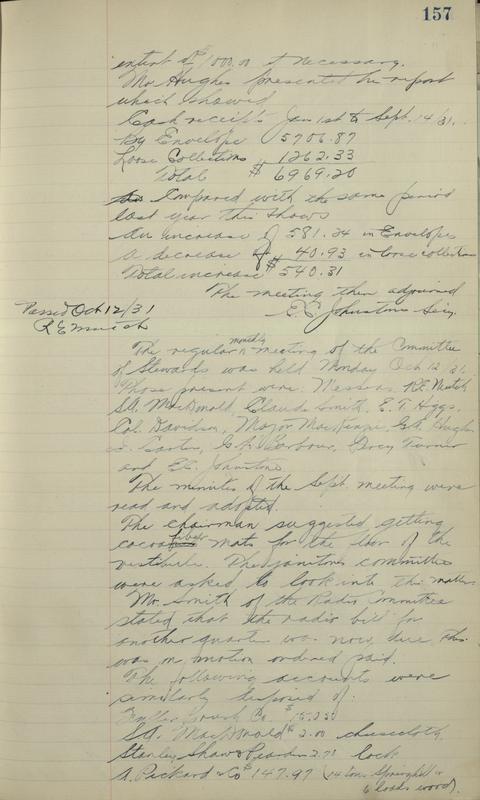 157
extent of $1000.00 if necessary.
Mr Hughes presented his report
which showed
Cash receipts Jan 1st to Sept. 14/31.
By Envelope 5706.87
Loose Collections 1262.33
Total $6969.20
Compared with the same period
last year this shows
An increase of 581.24 in Envelopes
a decrease of 40.93 in loose collections
Total increase $540.31
The meeting then adjourned
E.C. Johnstone Secy.
Passed Oct 12/31
The regular monthly meeting of the Committee
of Stewards was held Monday Oct 12 31.
Those present were: Messrs.
S.A. MacDonald, Claude Smith, E.T. Higgs,
Col. Davidson, Major MacKenzie, G.A. Hughes
Carter, Barbour, Percy Turner
and E.C. Johnstone
The minutes of the Sept. meeting were
read and adopted.
The chairman suggested getting
cocoa fiber mats for the door of the
vestibule. The janitors committee
were asked to look into this matter
Mr. Smith of the Radio Committee
stated that the radio bill for
another quarter was now due. This
was on motion ordered paid.
The following accounts were
similarly disposed of.
Fuller Brush Co.
S.A. MacDonald $2.00 cheesecloth
Stanley Shaw & Peardon 2.75 lock
A. Pickard & Co $147.97 (14 tons Springhill &
6 loads wood)